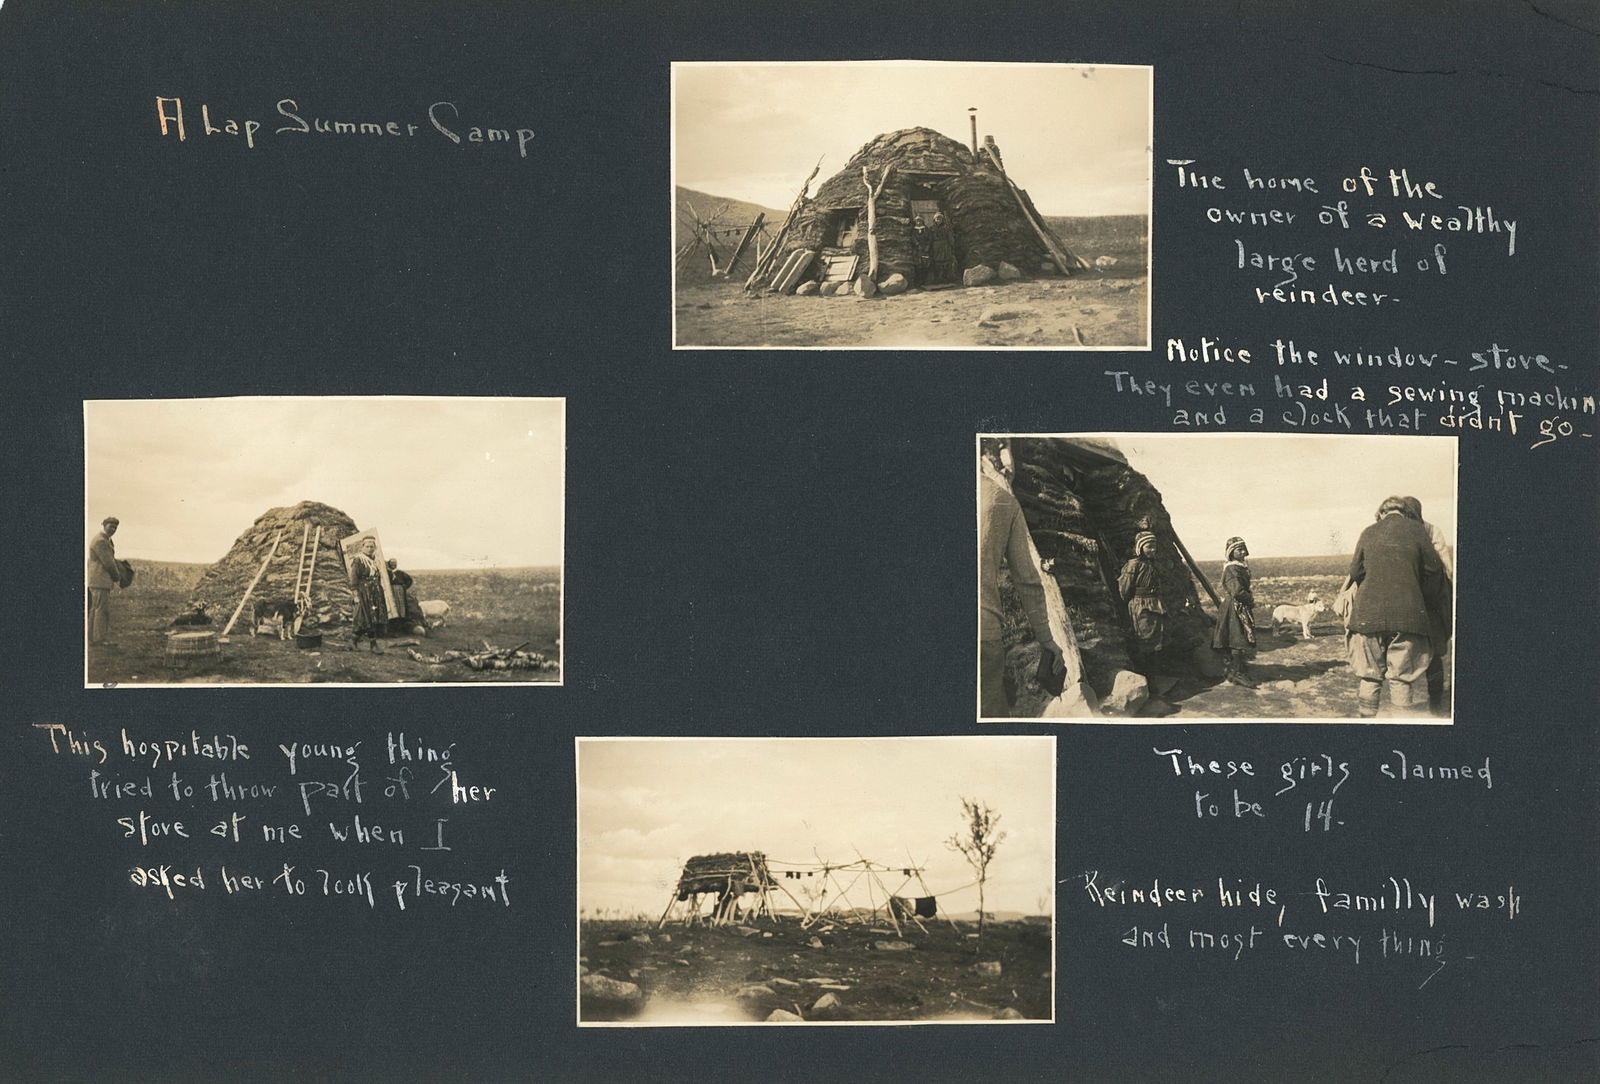 A Lap Summer Camp
The home of the
owner of a wealthy
large herd of
reindeer-
Notice the window - stove -
They even had a sewing machin
and a clock that didn't go -
This hospitable young thing
tried to throw part of her
stove at me when I
asked her to look pleasant
These girls claimed
to be 14.
Reindeer hide, familly wash
and most every thing -